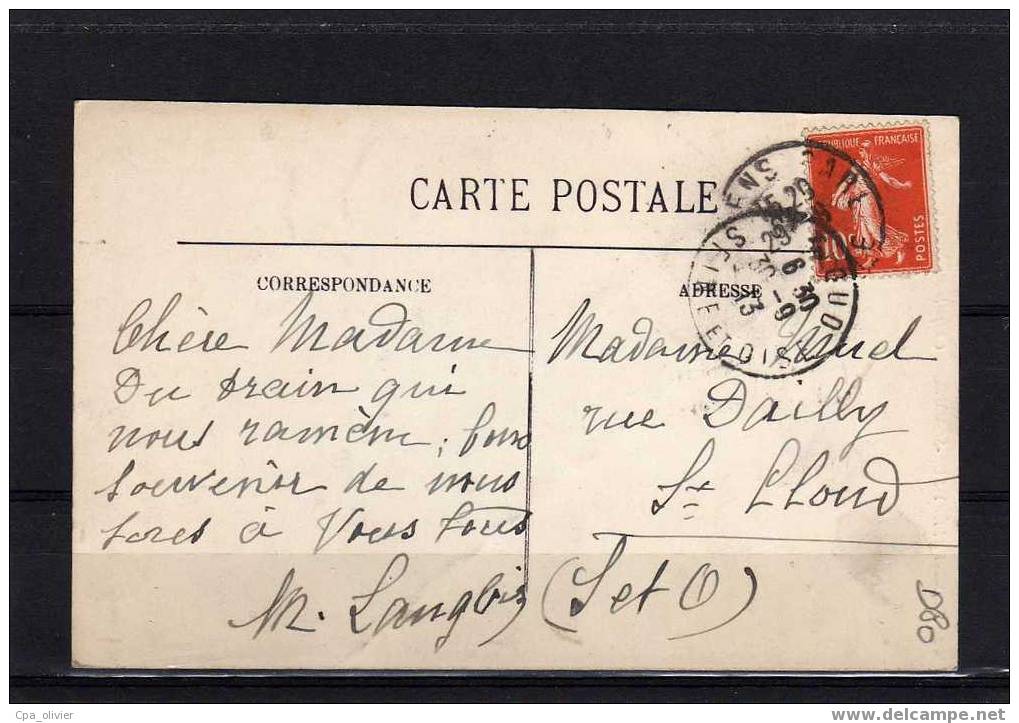 CARTE POSTALE
RÉPUBLIQUE FRANÇAISE
POSTES
10
CORRESPONDANCE
Chère Madame
Du train qui
nous ramène, bons
souvenir de nous
tores à Vous tous
M. Langlois
ADRESSE
Madame
rue Dailly
St Cloud
(S et O)
D80
Cpa_olivier
www.delcampe.net